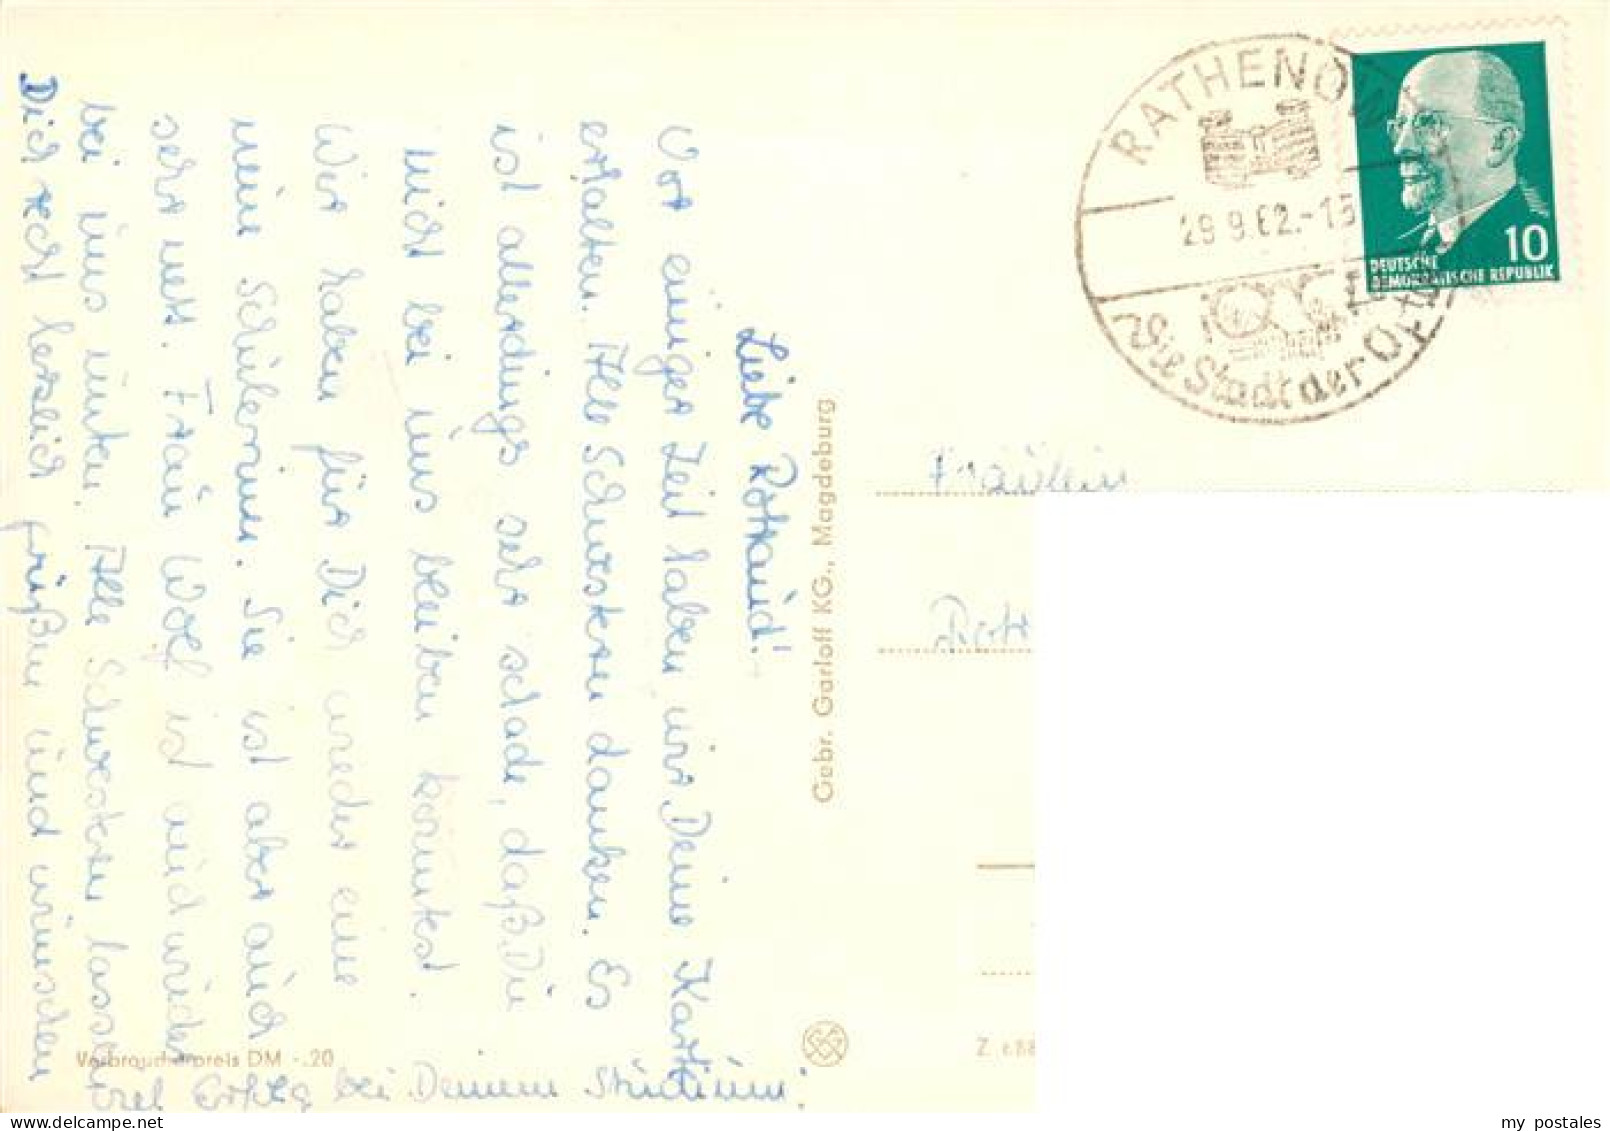 Liebe Rotraud!
Vor einiger Zeit haben wir Deine Karte
erhalten. Alle Schwestern danken. Es
ist allerdings sehr schade, daß Du
nicht bei uns bleiben konntest.
Wir haben für Dich wieder eine
neue Schülerin. Sie ist aber auch
sehr nett. Frau Wolf ist auch wieder
bei uns unten. Alle Schwestern lassen
Dich recht herzlich grüßen und wünschen
viel Erfolg bei Deinem Studium!
Verbraucherpreis DM -.20
Gebr. Garloff KG., Magdeburg
RATHENOW
29.9.62.-15
Die Stadt der Optik
10
DEUTSCHE
DEMOKRATISCHE REPUBLIK
Fräulein
Rotr
my postales